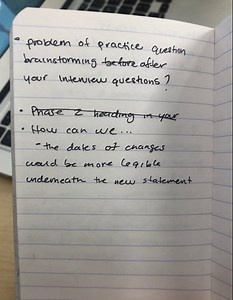 • problem of practice question
brainstorming before after
your interview questions?
• Phase 2 heading in your
• How can we...
- the dates of changes
would be more legible
underneath the new statement